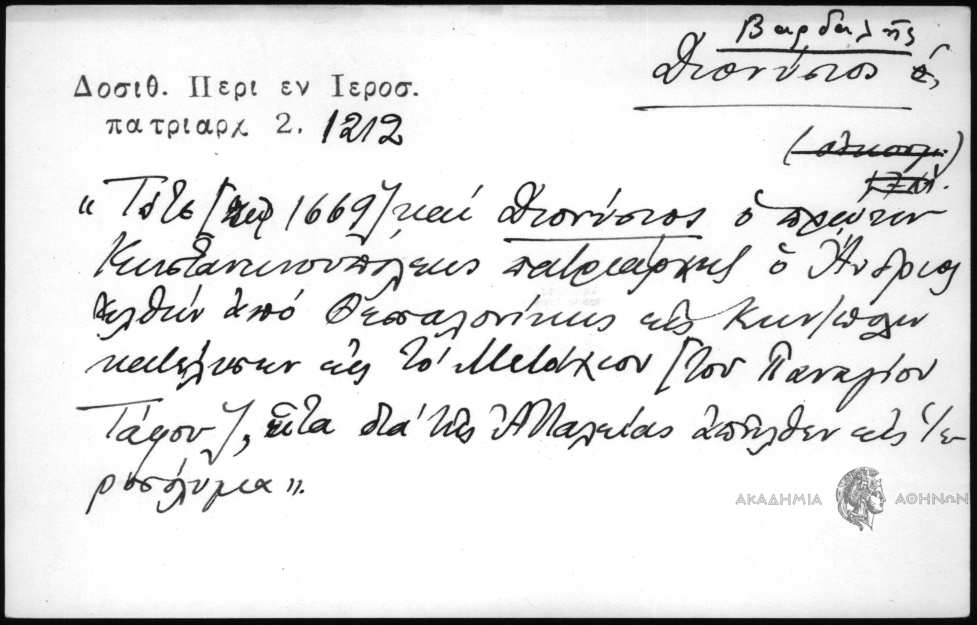 Βαρδαλῆς
Διονύσιος ὁ,
Δοσιθ. Περι εν Ιεροσ.
πατριαρχ 2. 1212
« Τότε [περ 1669] καί Διονύσιος ὁ πρώην
Κωνσταντινουπόλεως πατριάρχης ὁ Ἄνδριος
ἐλθών ἀπό Θεσσαλονίκης εἰς Κων/πολιν
κατέλυσεν εἰς τό Μετόχιον [τοῦ Παναγίου
Τάφου], εἶτα διά τῆς Ἀτταλείας ἀπῆλθεν εἰς Ἱε-
ροσόλυμα ».
ΑΚΑΔΗΜΙΑ ΑΘΗΝΩΝ